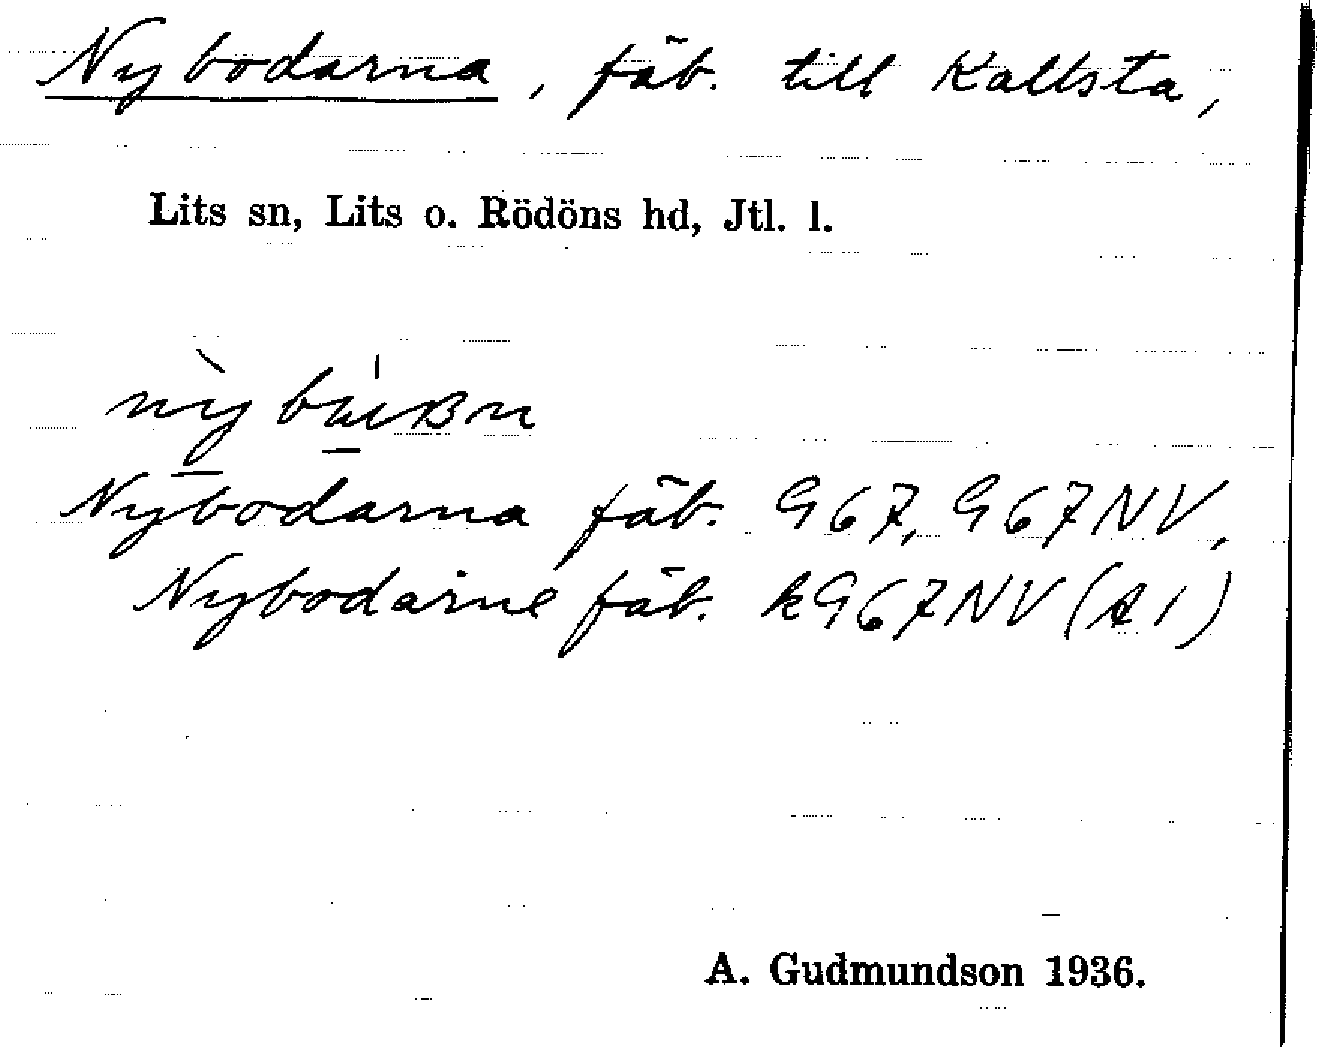 Nybodarna, fäb. till Kallsta,
Lits sn, Lits o. Rödöns hd, Jtl. l.
Nybodarna fäb. G67, G67NV,
Nybodarne fäb. kG67NV (A1)
A. Gudmundson 1936.